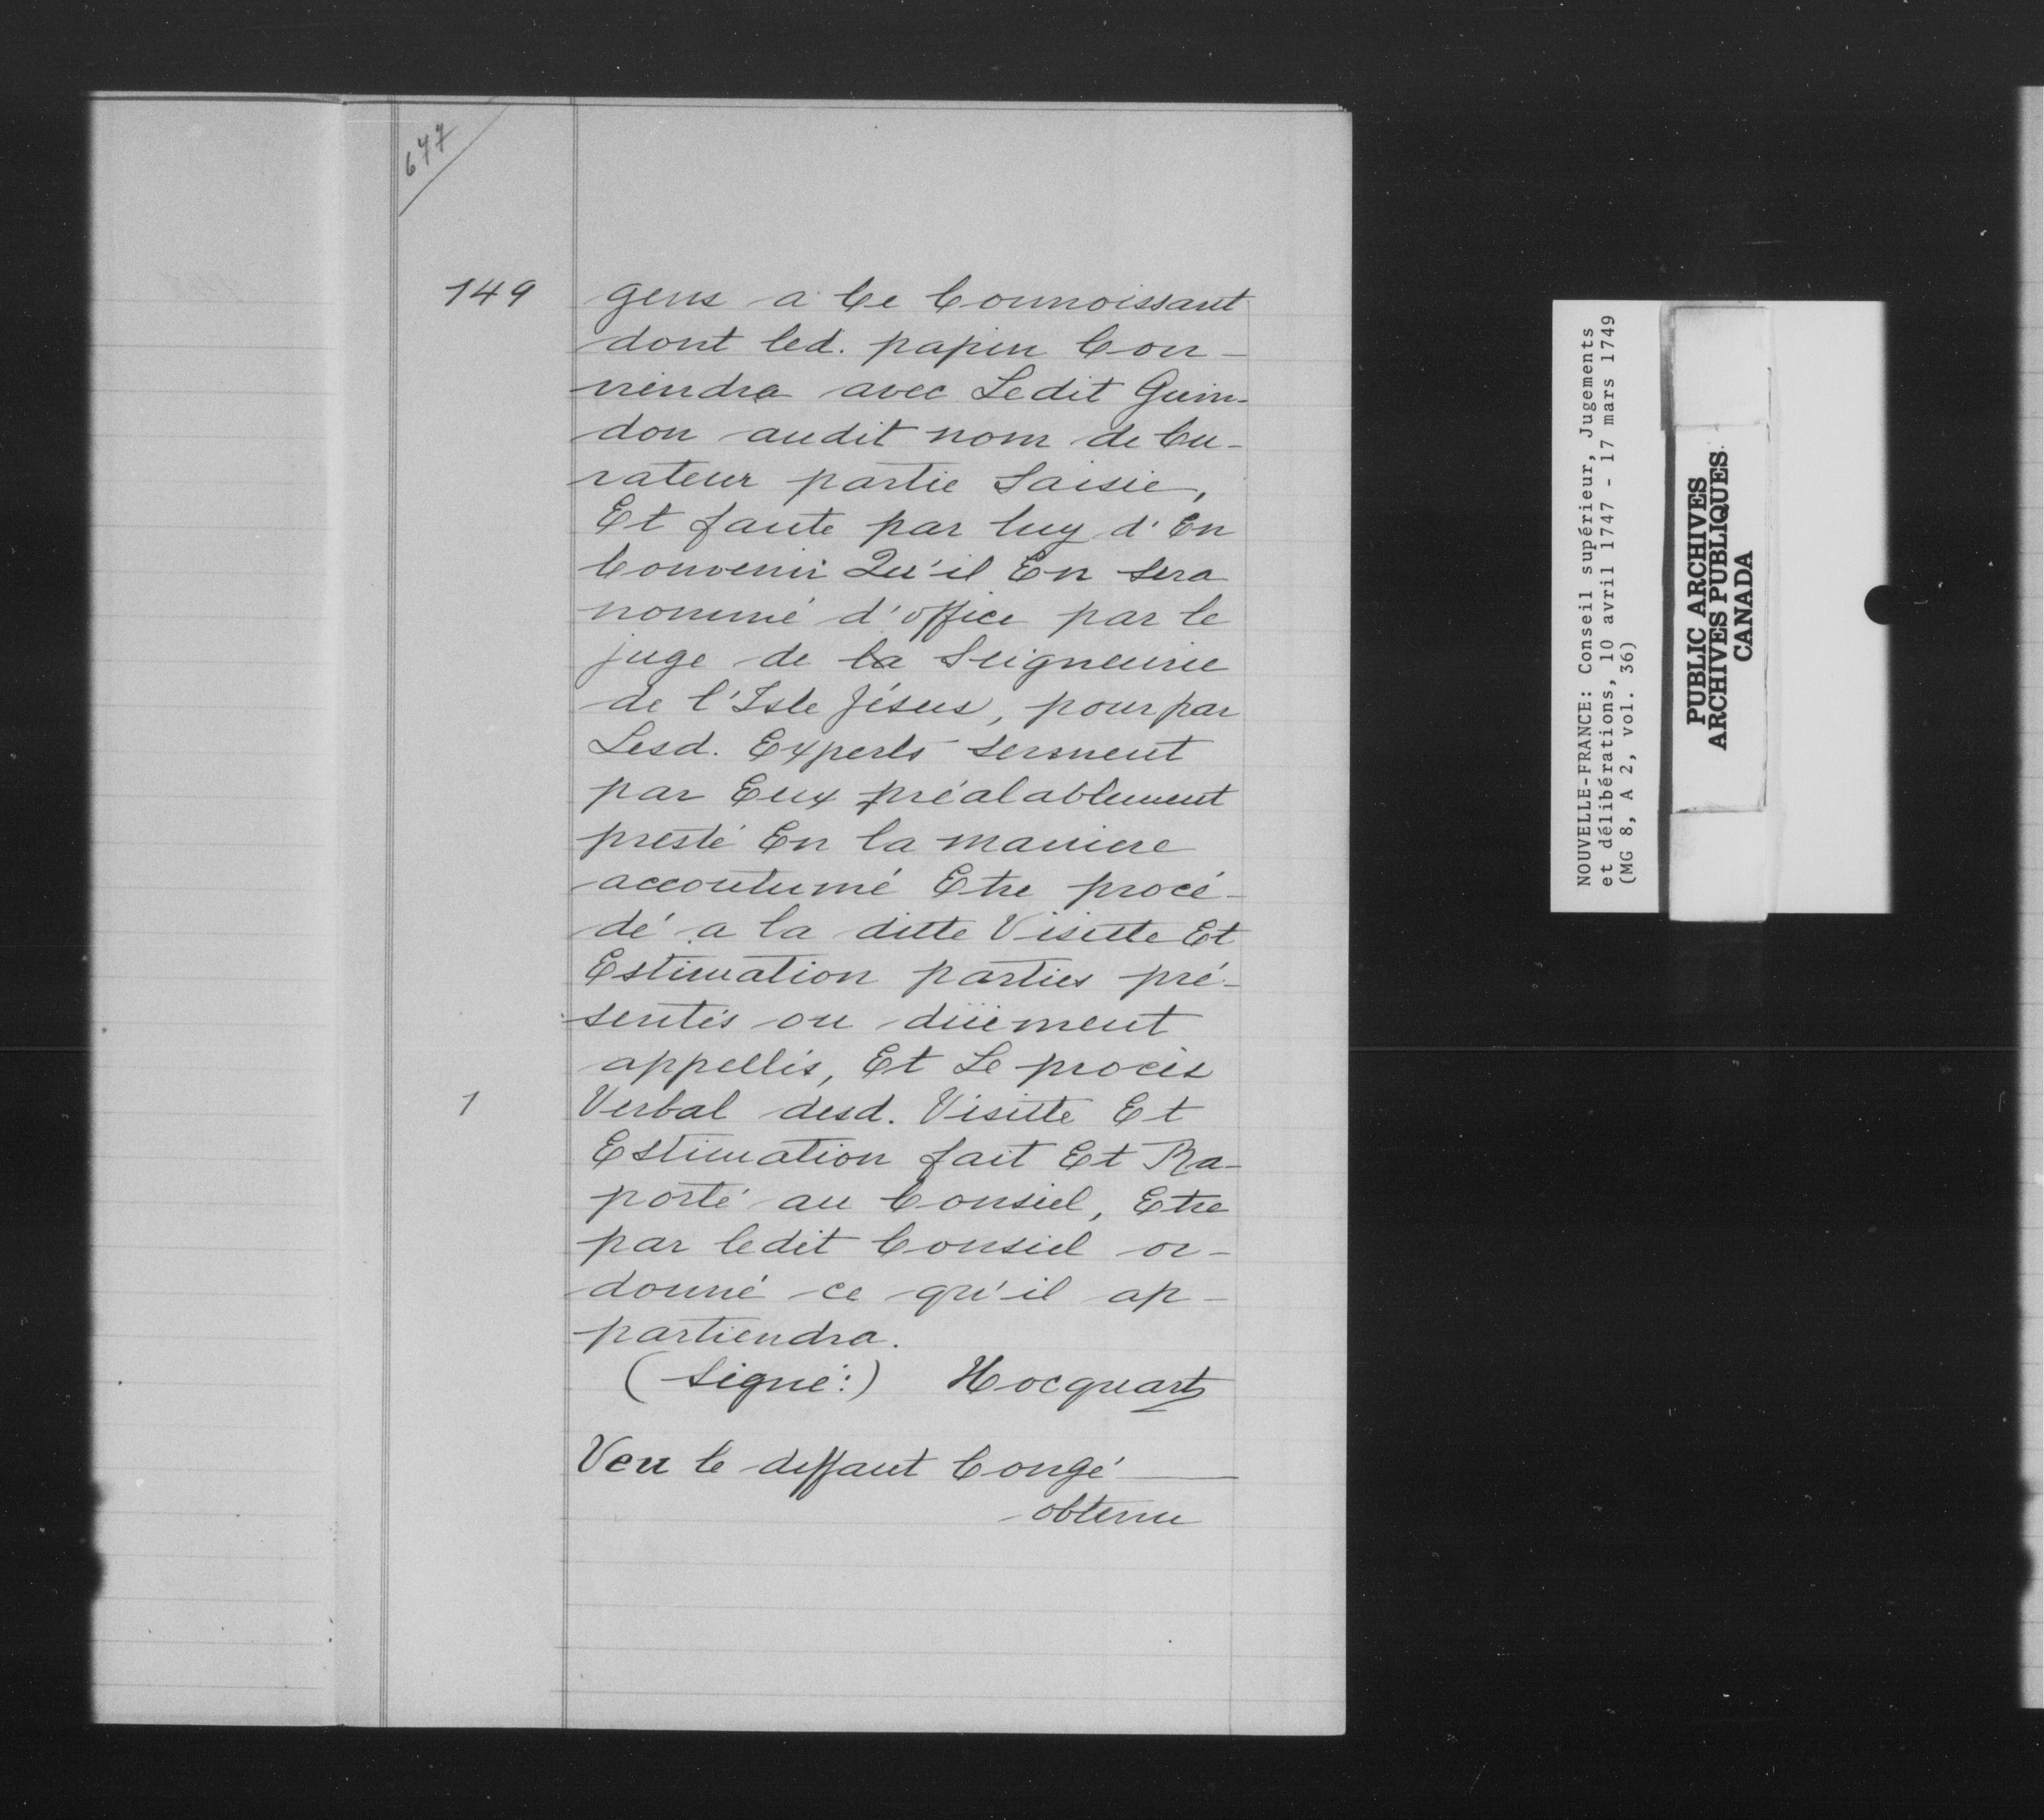 677
149
gens a Ce Connoissant
dont led. papin Con-
viendra avec Ledit Guin-
don audit nom de Cu-
rateur partie Saisie,
Et faute par luy d'En
Convenir Qu'il En sera
nommé d'office par le
juge de la Seigneurie
de l'Isle Jésus, pour par
Lesd. Experts serment
par Eux préalablement
presté En la maniere
accoutumé Etre procé-
dé a la ditte Visitte Et
Estimation parties pré-
sentés ou düement
appellés, Et Le procès
1
Verbal desd. Visitte Et
Estimation fait Et Ra-
porté au Conseil, Etre
par ledit Conseil or-
donné ce qu'il ap-
partiendra.
(Signé:) Hocquart
Veu le deffaut Congé
obtenu
NOUVELLE-FRANCE: Conseil supérieur, Jugements
et délibérations, 10 avril 1747 - 17 mars 1749
(MG 8, A 2, vol. 36)
PUBLIC ARCHIVES
ARCHIVES PUBLIQUES
CANADA